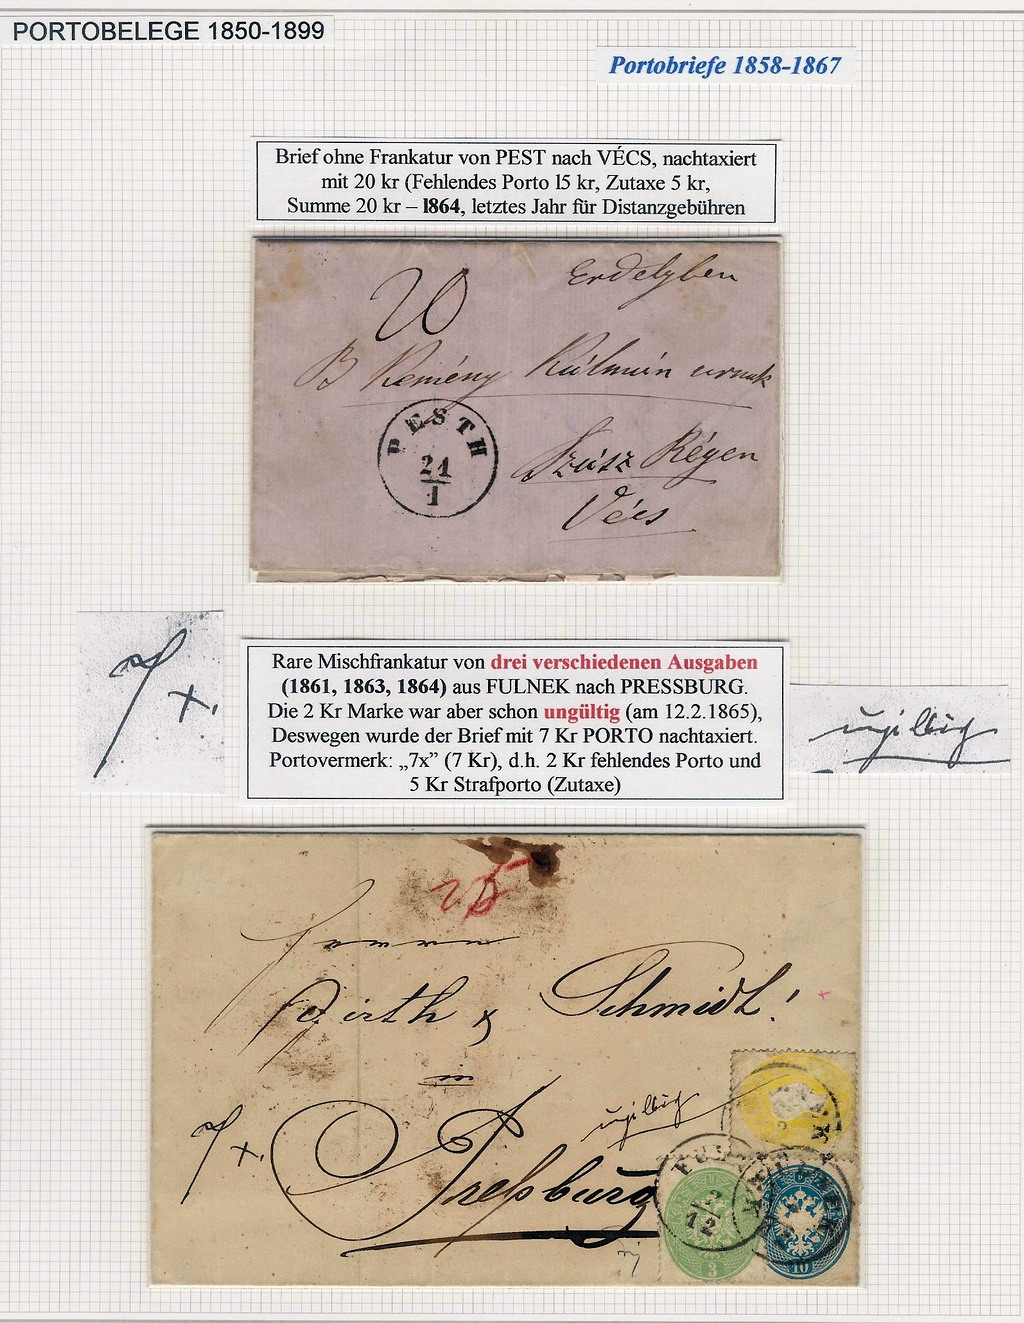 PORTOBELEGE 1850-1899
Portobriefe 1858-1867
Brief ohne Frankatur von PEST nach VÉCS, nachtaxiert
mit 20 kr (Fehlendes Porto l5 kr, Zutaxe 5 kr,
Summe 20 kr – l864, letztes Jahr für Distanzgebühren
Erdelyben
20
B Kemény Kálmán urnak
PESTH
21
1
Szász Régen
Vécs
7x.
Rare Mischfrankatur von drei verschiedenen Ausgaben
(1861, 1863, 1864) aus FULNEK nach PRESSBURG.
Die 2 Kr Marke war aber schon ungültig (am 12.2.1865),
Deswegen wurde der Brief mit 7 Kr PORTO nachtaxiert.
Portovermerk: „7x” (7 Kr), d.h. 2 Kr fehlendes Porto und
5 Kr Strafporto (Zutaxe)
ungiltig
Herrn
Wirth & Schmidt!
in
ungiltig
7x.
Preßburg
2
12
3
10